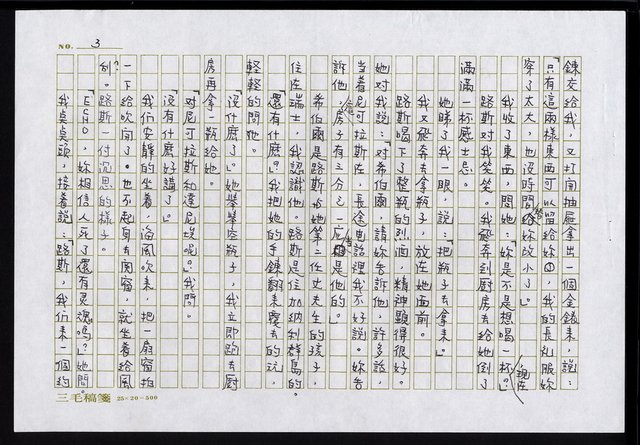 NO. 3
鍊交給我，又打開抽屜拿出一個金錶來，說：
「只有這兩樣東西可以留給妳，我的長禮服妳
穿了太大，也沒時間替妳改小了」。
我收了東西，問她：「妳是不是現在想喝一杯？」
路斯對我笑笑。我飛奔到厨房去給她倒了
滿滿一杯威士忌。
她睇了我一眼，說：「把瓶子去拿來」。
我又飛奔去拿瓶子，放在她面前。
路斯喝下了整瓶的烈酒，精神顯得很好。
她對我說：「對希伯爾，請妳告訴他，許多話，
當着尼可拉斯在，長途電話裡我不好說。妳告
訴他，這房子有三分之一應當是他的。」
希伯爾是路斯與她第二任丈夫生的孩子，
住在瑞士，我認識他。路斯是住加納利群島的。
「還有什麼？」我把她的手鍊翻來覆去的玩，
輕輕的問他。
「沒什麼了。」她舉舉空瓶子，我立即跑去厨
房再拿一瓶給她。
「對尼可拉斯和達尼埃呢。」我問。
「沒有什麼好講了」。
我們安靜的坐着，海風吹來，把一扇窗拍
一下給吹開了。也不起身去関窗，就坐着給風
刮。路斯一付沉思的樣子。
「ECHO，妳相信人死了還有靈魂嗎？」她問。
我點點頭，接着說：「路斯，我們來一個約
三毛稿箋 25×20=500